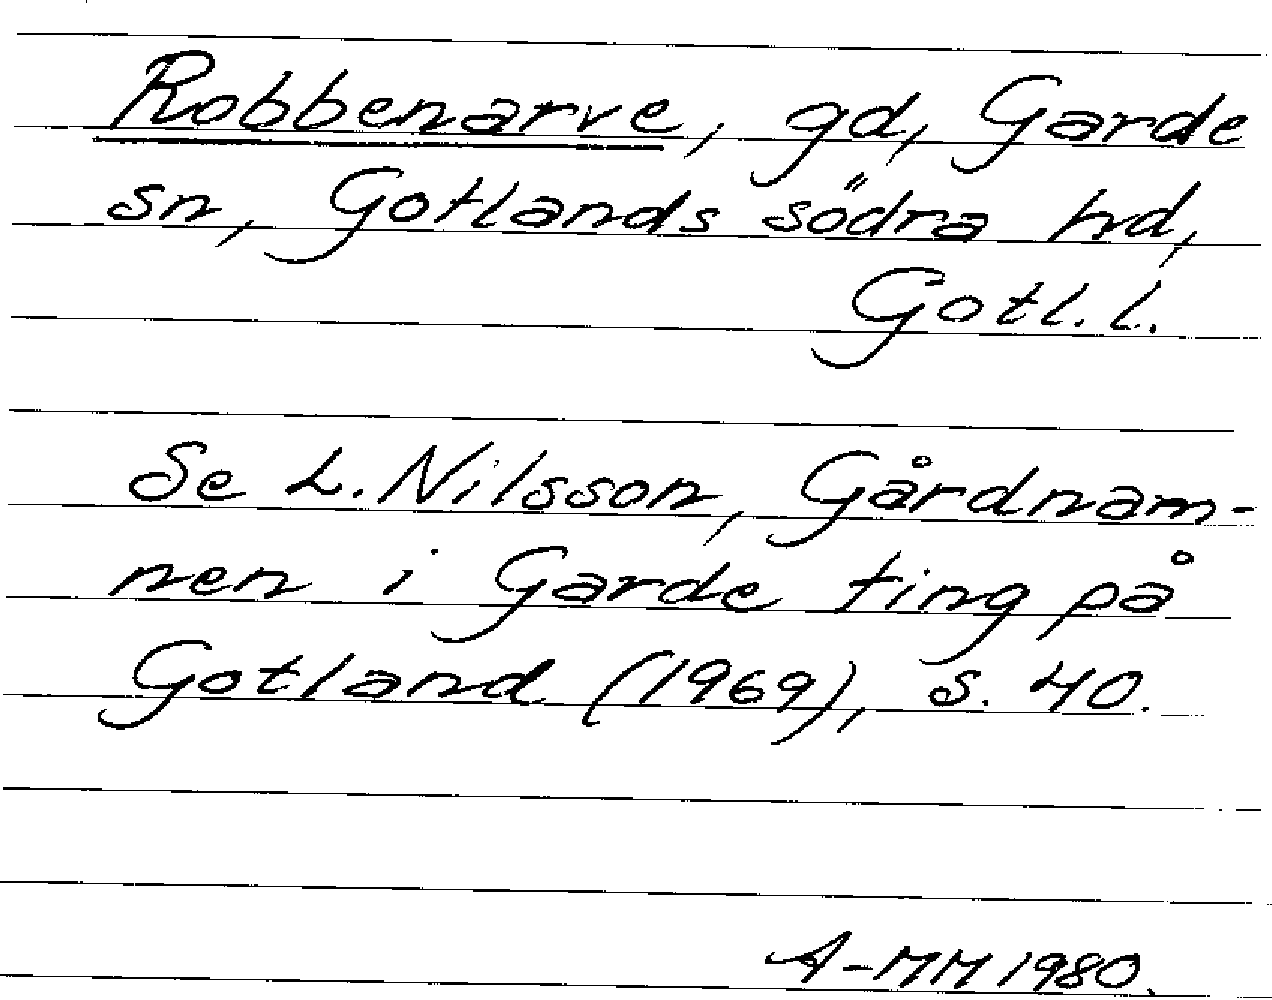 Robbenarve, gd, Garde
sn, Gotlands södra hd,
Gotl. l.
Se L. Nilsson, Gårdnam-
nen i Garde ting på
Gotland (1969), s. 40.
A-MM 1980.